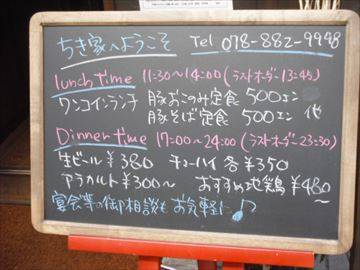 ちき家へようこそ Tel 078-882-9998
lunch time 11:30～14:00(ラストオーダー13:45)
ワンコインランチ 豚おこのみ定食 500エン
豚そば定食 500エン 他
Dinner time 17:00～24:00(ラストオーダー23:30)
生ビール¥380 チューハイ各¥350
アラカルト¥300～ おすすめ地鶏¥480～
宴会等の御相談もお気軽に♪